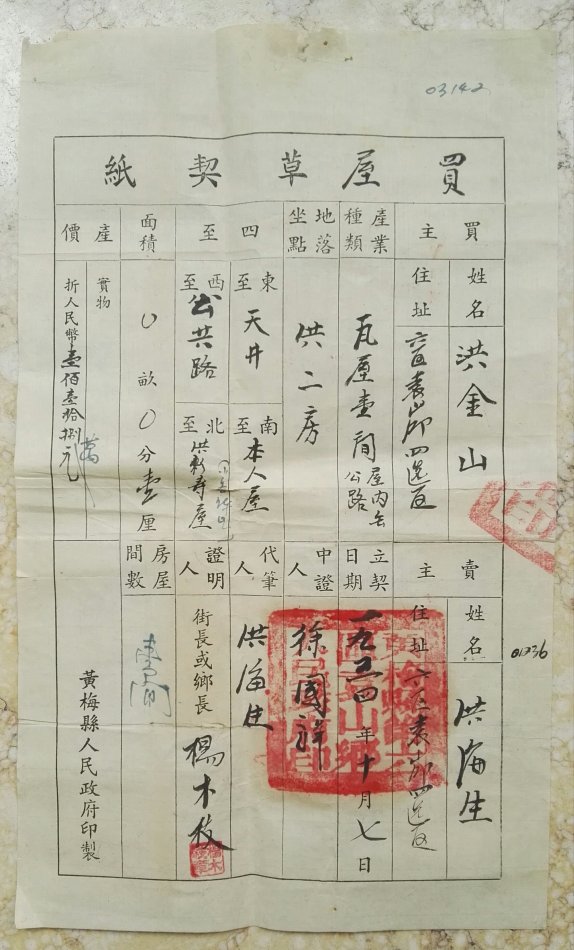 03142
買屋草契紙
買主
姓名
洪金山
住址
六区袁山鄉四選区
產業種類
瓦屋壹間
屋內
公路
坐落地點
洪二房
四至
東至
天井
南至
本人屋
西至
公共路
北至
洪新寿屋
面積
0畝0分壹厘
產價
實物
折人民幣壹佰壹拾捌元
萬
賣主
姓名
洪海生
01736
住址
六区袁山鄉四選区
立契日期
一九五四年十月七日
中證人
徐國祥
代筆人
洪海生
證明人
街長或鄉長
楊木枝
房屋間數
壹間
黃梅縣人民政府印製